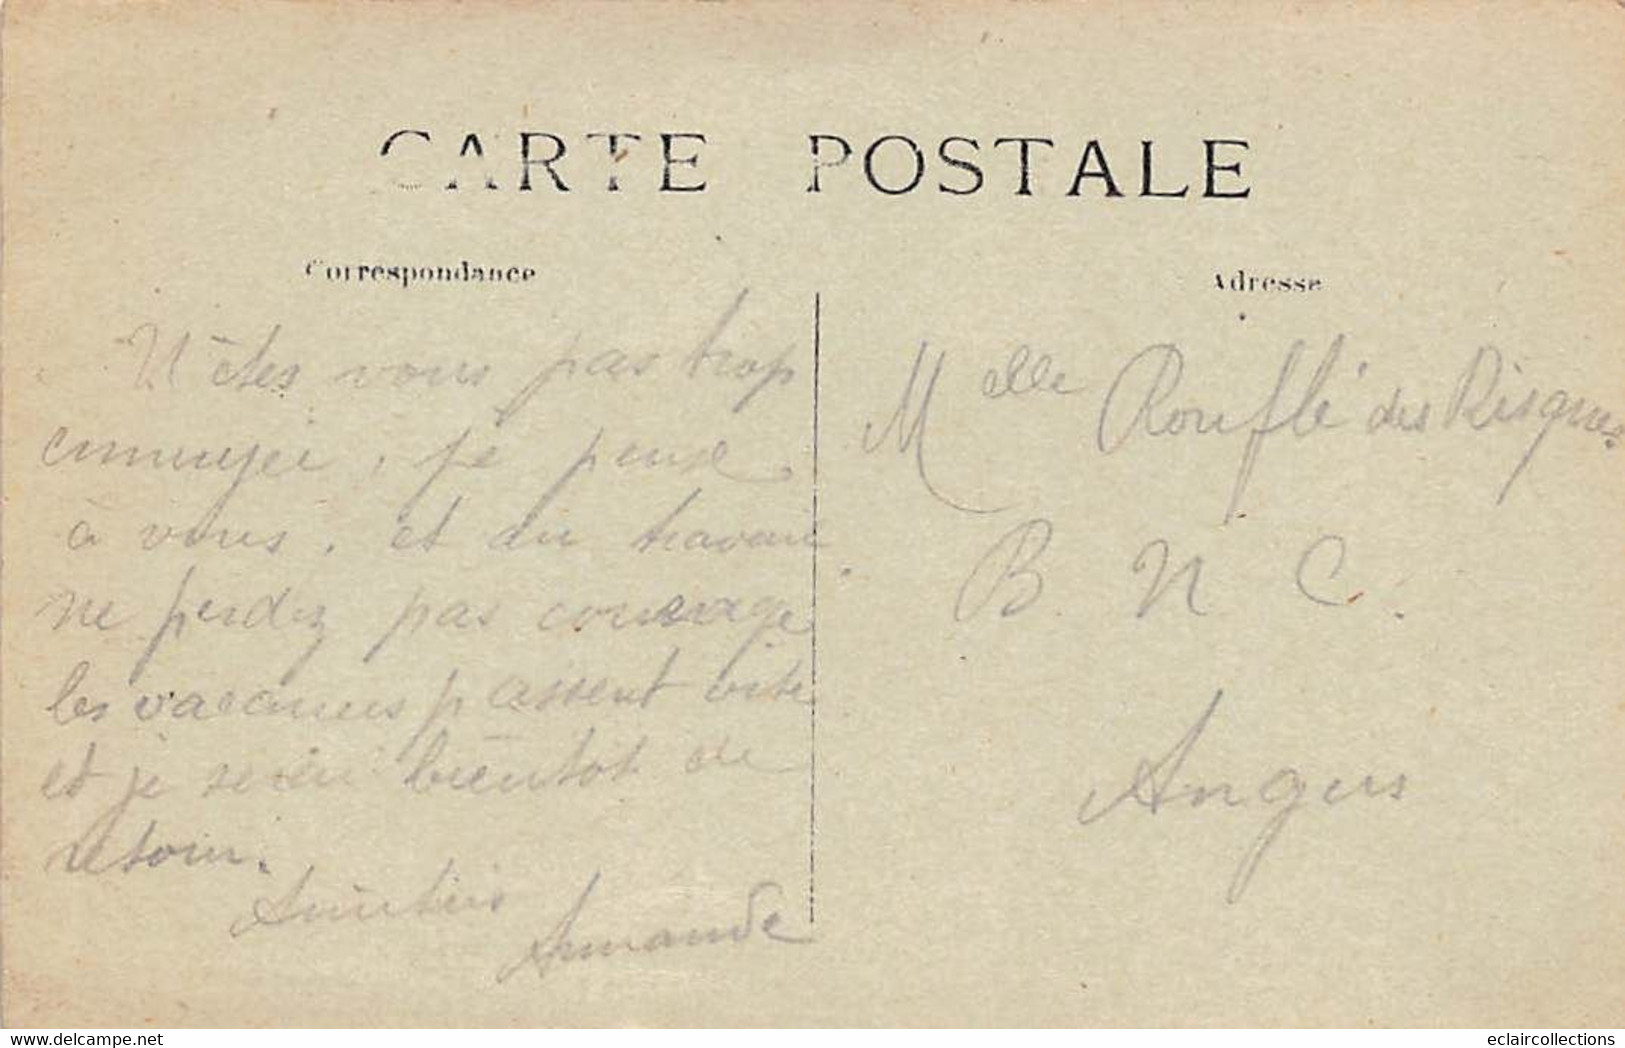 CARTE POSTALE
Correspondance
Adresse
N'êtes vous pas trop
ennuyée, je pense
à vous, et du travail
ne perdez pas courage
les vacances passent vite
et je serai bientôt de
retour.
Amitiés
Armande
Melle Rouflé des Risques
B. N C.
Angers
delcampe.net
eclaircollections